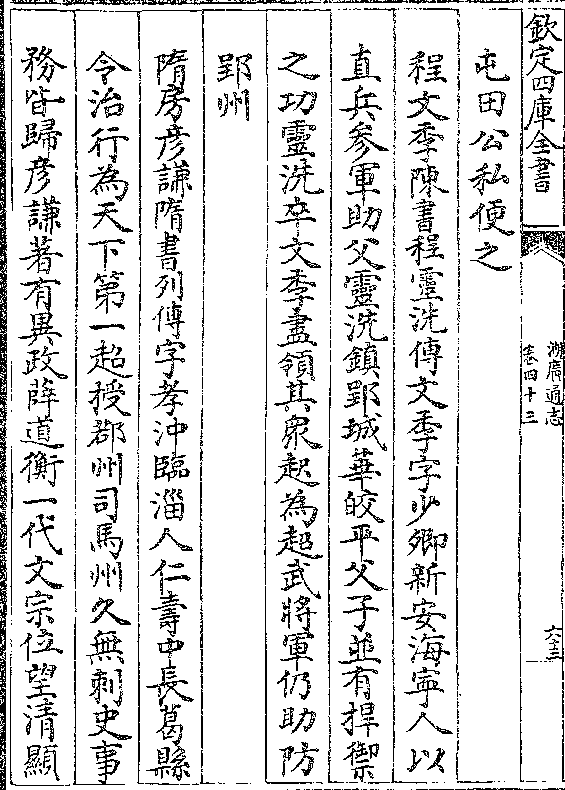 欽定四庫全書
湖廣通志
卷四十三
六十三
屯田公私便之
程文季陳書程靈洗傳文季字少卿新安海寧人以
直兵參軍助父靈洗鎮郢城華皎平父子並有捍禦
之功靈洗卒文季盡領其衆起為超武將軍仍助防
郢州
隋房彥謙隋書列傳字孝沖臨淄人仁壽中長葛縣
令治行為天下第一超授鄀州司馬州久無刺史事
務皆歸彥謙著有異政薛道衡一代文宗位望清顯